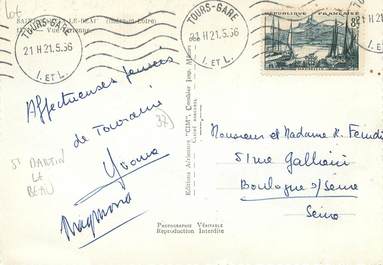 Lot
SAINT- LE-BEAU (Indre-et-Loire)
Vue Aérienne
TOURS-GARE
21 H 21.5.56
I. ET L.
TOURS-GARE
21 H 21.5.56
I. ET L.
REPUBLIQUE FRANÇAISE
Affectueuses pensées
de Touraine
Yvonne
Raymond
37)
ST MARTIN
LE
BEAU
Editions Aériennes "CIM" Combier Imp. Mâcon
Monsieur et Madame
51 rue Galliéni
Boulogne s/Seine
Seine
PHOTOGRAPHIE VÉRITABLE
Reproduction Interdite